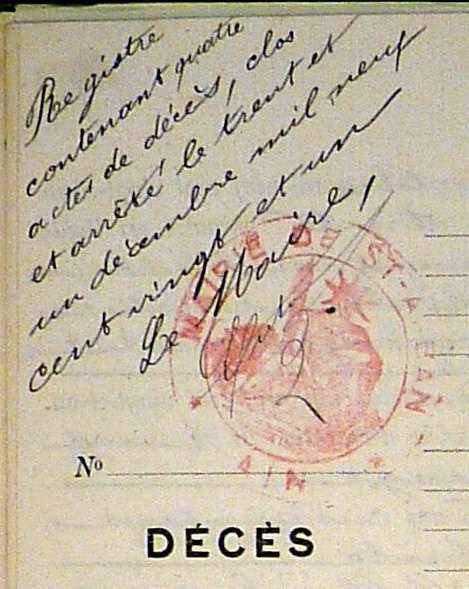 Registre
contenant quatre
actes de décès, clos
et arrêté le trent et
un décembre mil neuf
cent vingt et un
Le Maire,
MAIRIE DE ST-ALBAN
* AIN *
No
DÉCÈS